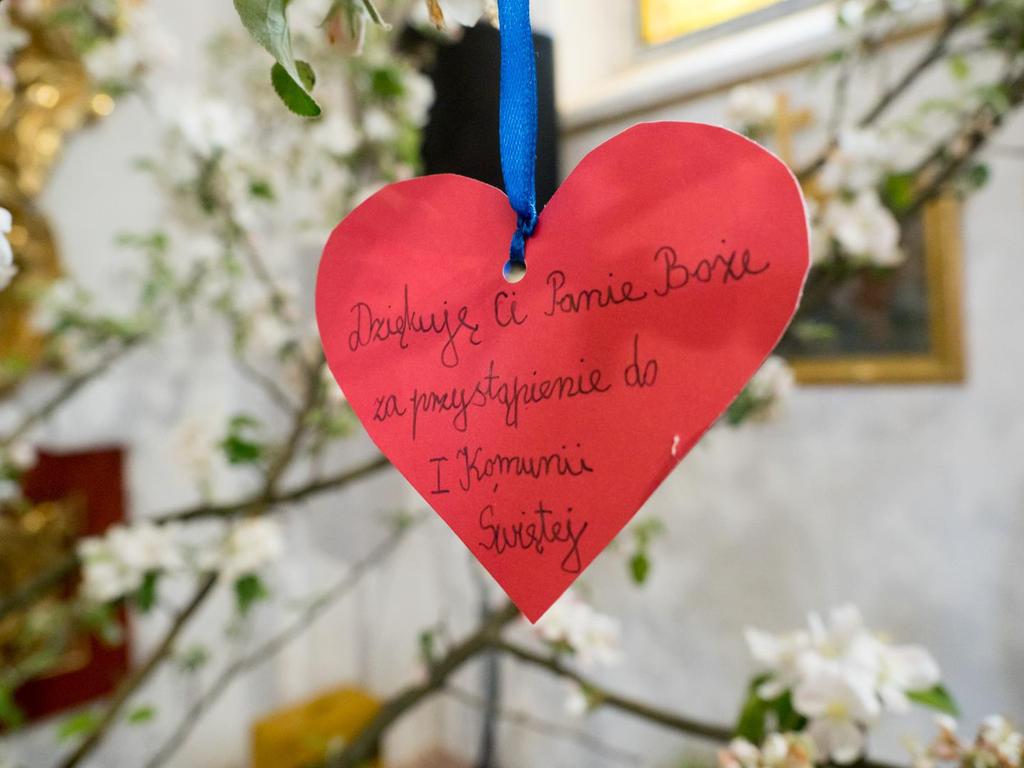 Dziękuję Ci Panie Boże
za przystąpienie do
I Komunii
Świętej